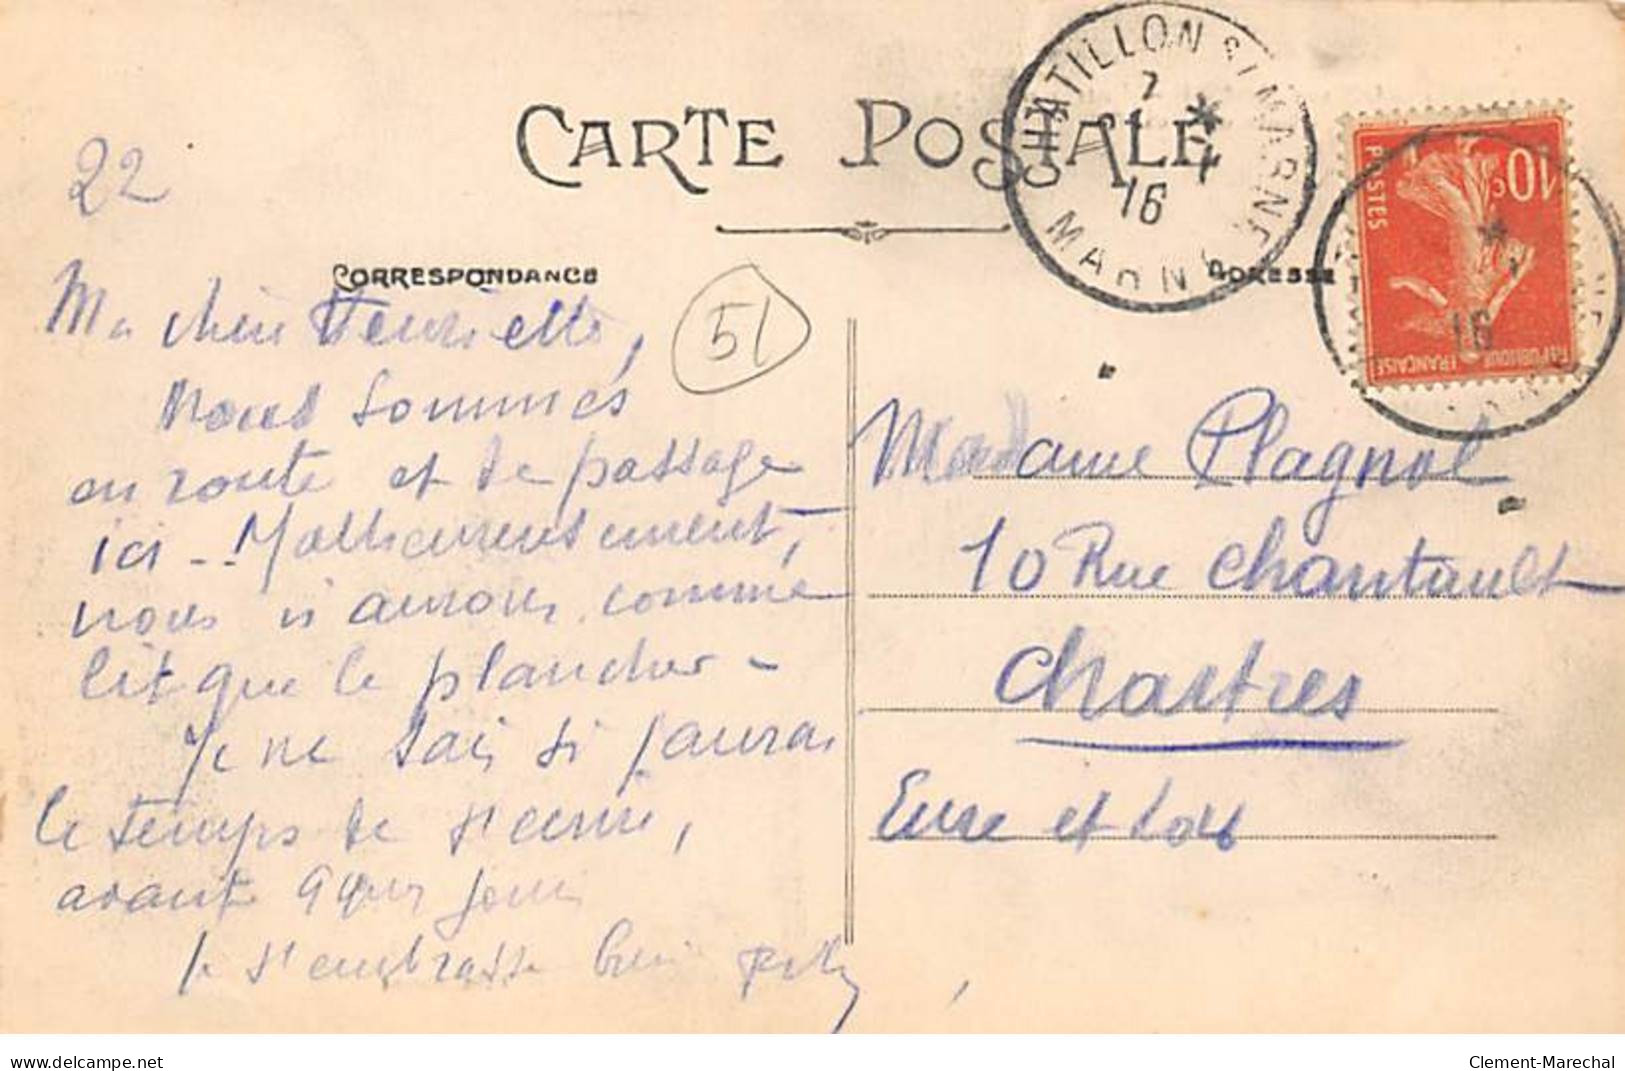 CARTE POSTALE
CHATILLON S/ MARNE
7 * 4
16
MARNE
10c
POSTES
REPUBLIQUE FRANÇAISE
16
22
CORRESPONDANCE
ADRESSE
51
Ma chère Henriette,
Nous sommes
en route et de passage
ici -. Malheureusement,
nous n'aurons comme
lit que le plancher -
Je ne sais si j'aurai
le temps de t'écrire,
avant qques jours
Je t'embrasse bien
Madame Plagnol
10 Rue Chantault
Chartres
Eure et Loir
www.delcampe.net
Clement-Marechal